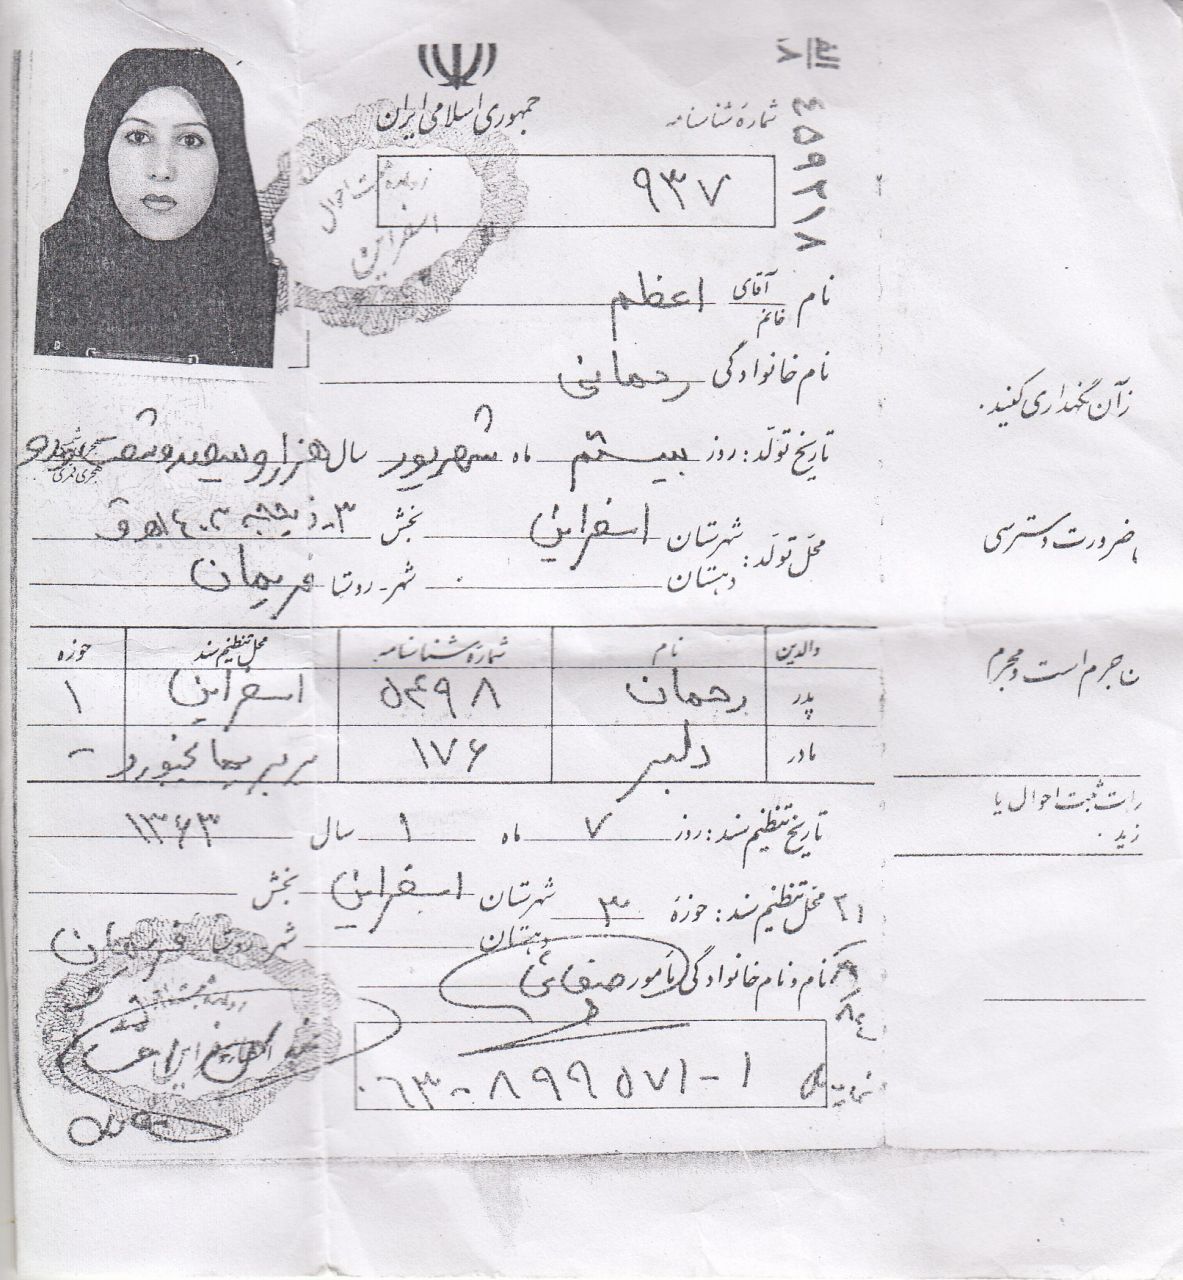 الف
۸
۴۵۹۲۱۸
جمهوری اسلامی ایران
شماره شناسنامه
۹۳۷
اداره ثبت احوال
اسفراین
نام آقای خانم اعظم
نام خانوادگی رحمانی
تاریخ تولّد: روز بیستم ماه شهریور سال هزار و سیصد و شصت و دو
محل تولّد: شهرستان اسفراین بخش ۳ـ ذیحجه ۱۴۰۳ هـ ق
دهستان شهر ـ روستا فریمان
والدین نام شماره شناسنامه محل تنظیم سند حوزه
پدر رحمان ۵۴۹۸ اسفراین ۱
مادر دلبر ۱۷۶ -
تاریخ تنظیم سند: روز ۷ ماه ۱ سال ۱۳۶۳
محل تنظیم سند: حوزه ۳ شهرستان اسفراین بخش
دهستان شهر روستا فریمان
نام و نام خانوادگی مامور صفائی
۰۶۳-۸۹۹۵۷۱-۱
زآن نگهداری کنید.
ضرورت دسترسی
ن جرم است و مجرم
رات ثبت احوال یا
زید.